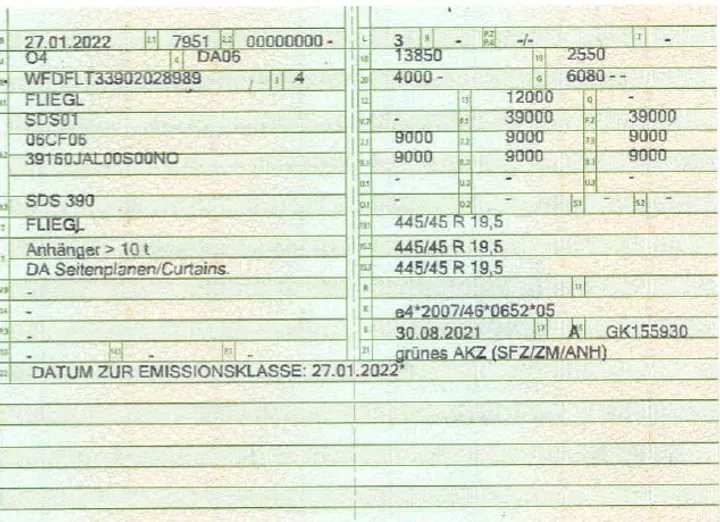 B 27.01.2022 2.1 7951 2.2 00000000 -
J 04 4 DA06
E WFDFLT33902028989 3 4
D.1 FLIEGL
SDS01
06CF06
D.2 39160JAL00S00NO
D.3 SDS 390
2 FLIEGL
5 Anhänger > 10 t
DA Seitenplanen/Curtains.
V.9 -
14 -
P.3 -
10 - 14.1 - P.1 -
22 DATUM ZUR EMISSIONSKLASSE: 27.01.2022*
L 3 9 - P.2 P.4 -/- T -
18 13850 19 2550
20 4000 - G 6080 - -
12 13 12000 Q -
V.7 - F.1 39000 F.2 39000
7.1 9000 7.2 9000 7.3 9000
8.1 9000 8.2 9000 8.3 9000
U.1 - U.2 - U.3 -
O.1 - O.2 - S.1 - S.2 -
15.1 445/45 R 19,5
15.2 445/45 R 19,5
15.3 445/45 R 19,5
R 11
K e4*2007/46*0652*05
6 30.08.2021 17 A 16 GK155930
21 grünes AKZ (SFZ/ZM/ANH)